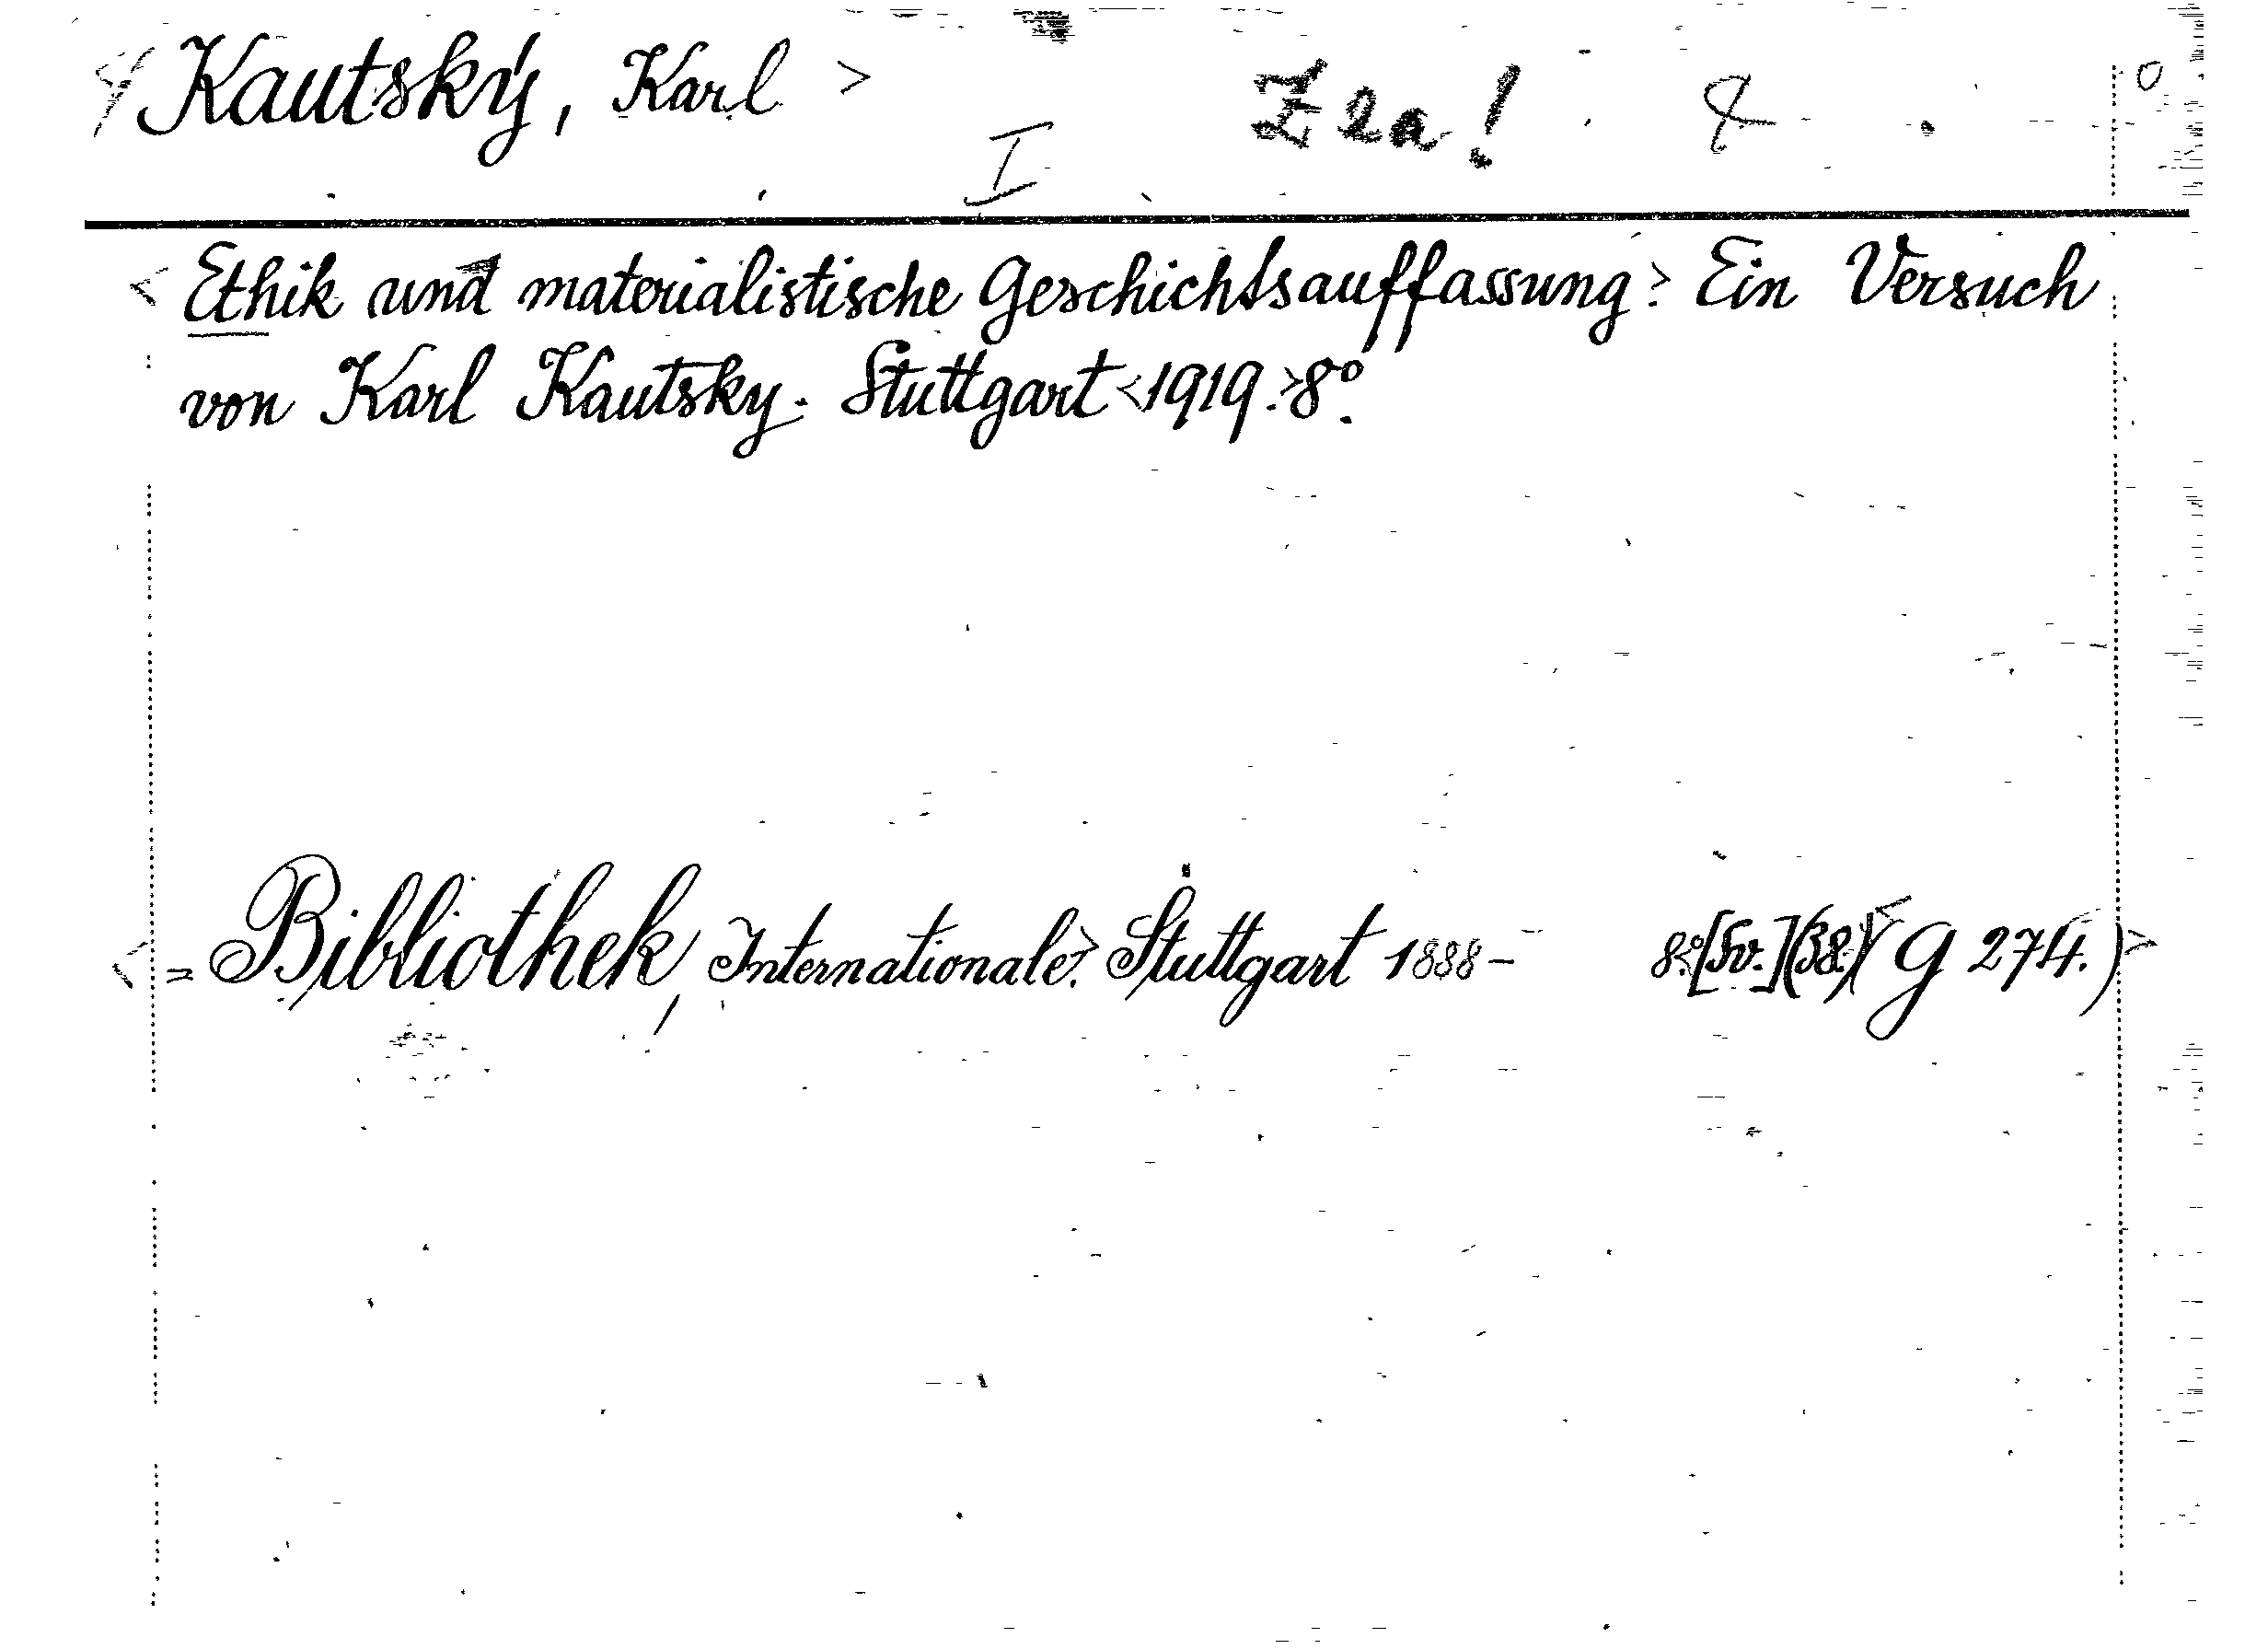 < Kautsky, Karl > Z 2a! 4
I
< Ethik und materialistische Geschichtsauffassung.> Ein Versuch
von Karl Kautsky. Stuttgart <1919.> 8°.
< = Bibliothek, Internationale.> Stuttgart 1888– 8°. (38.) < (G 274.) >